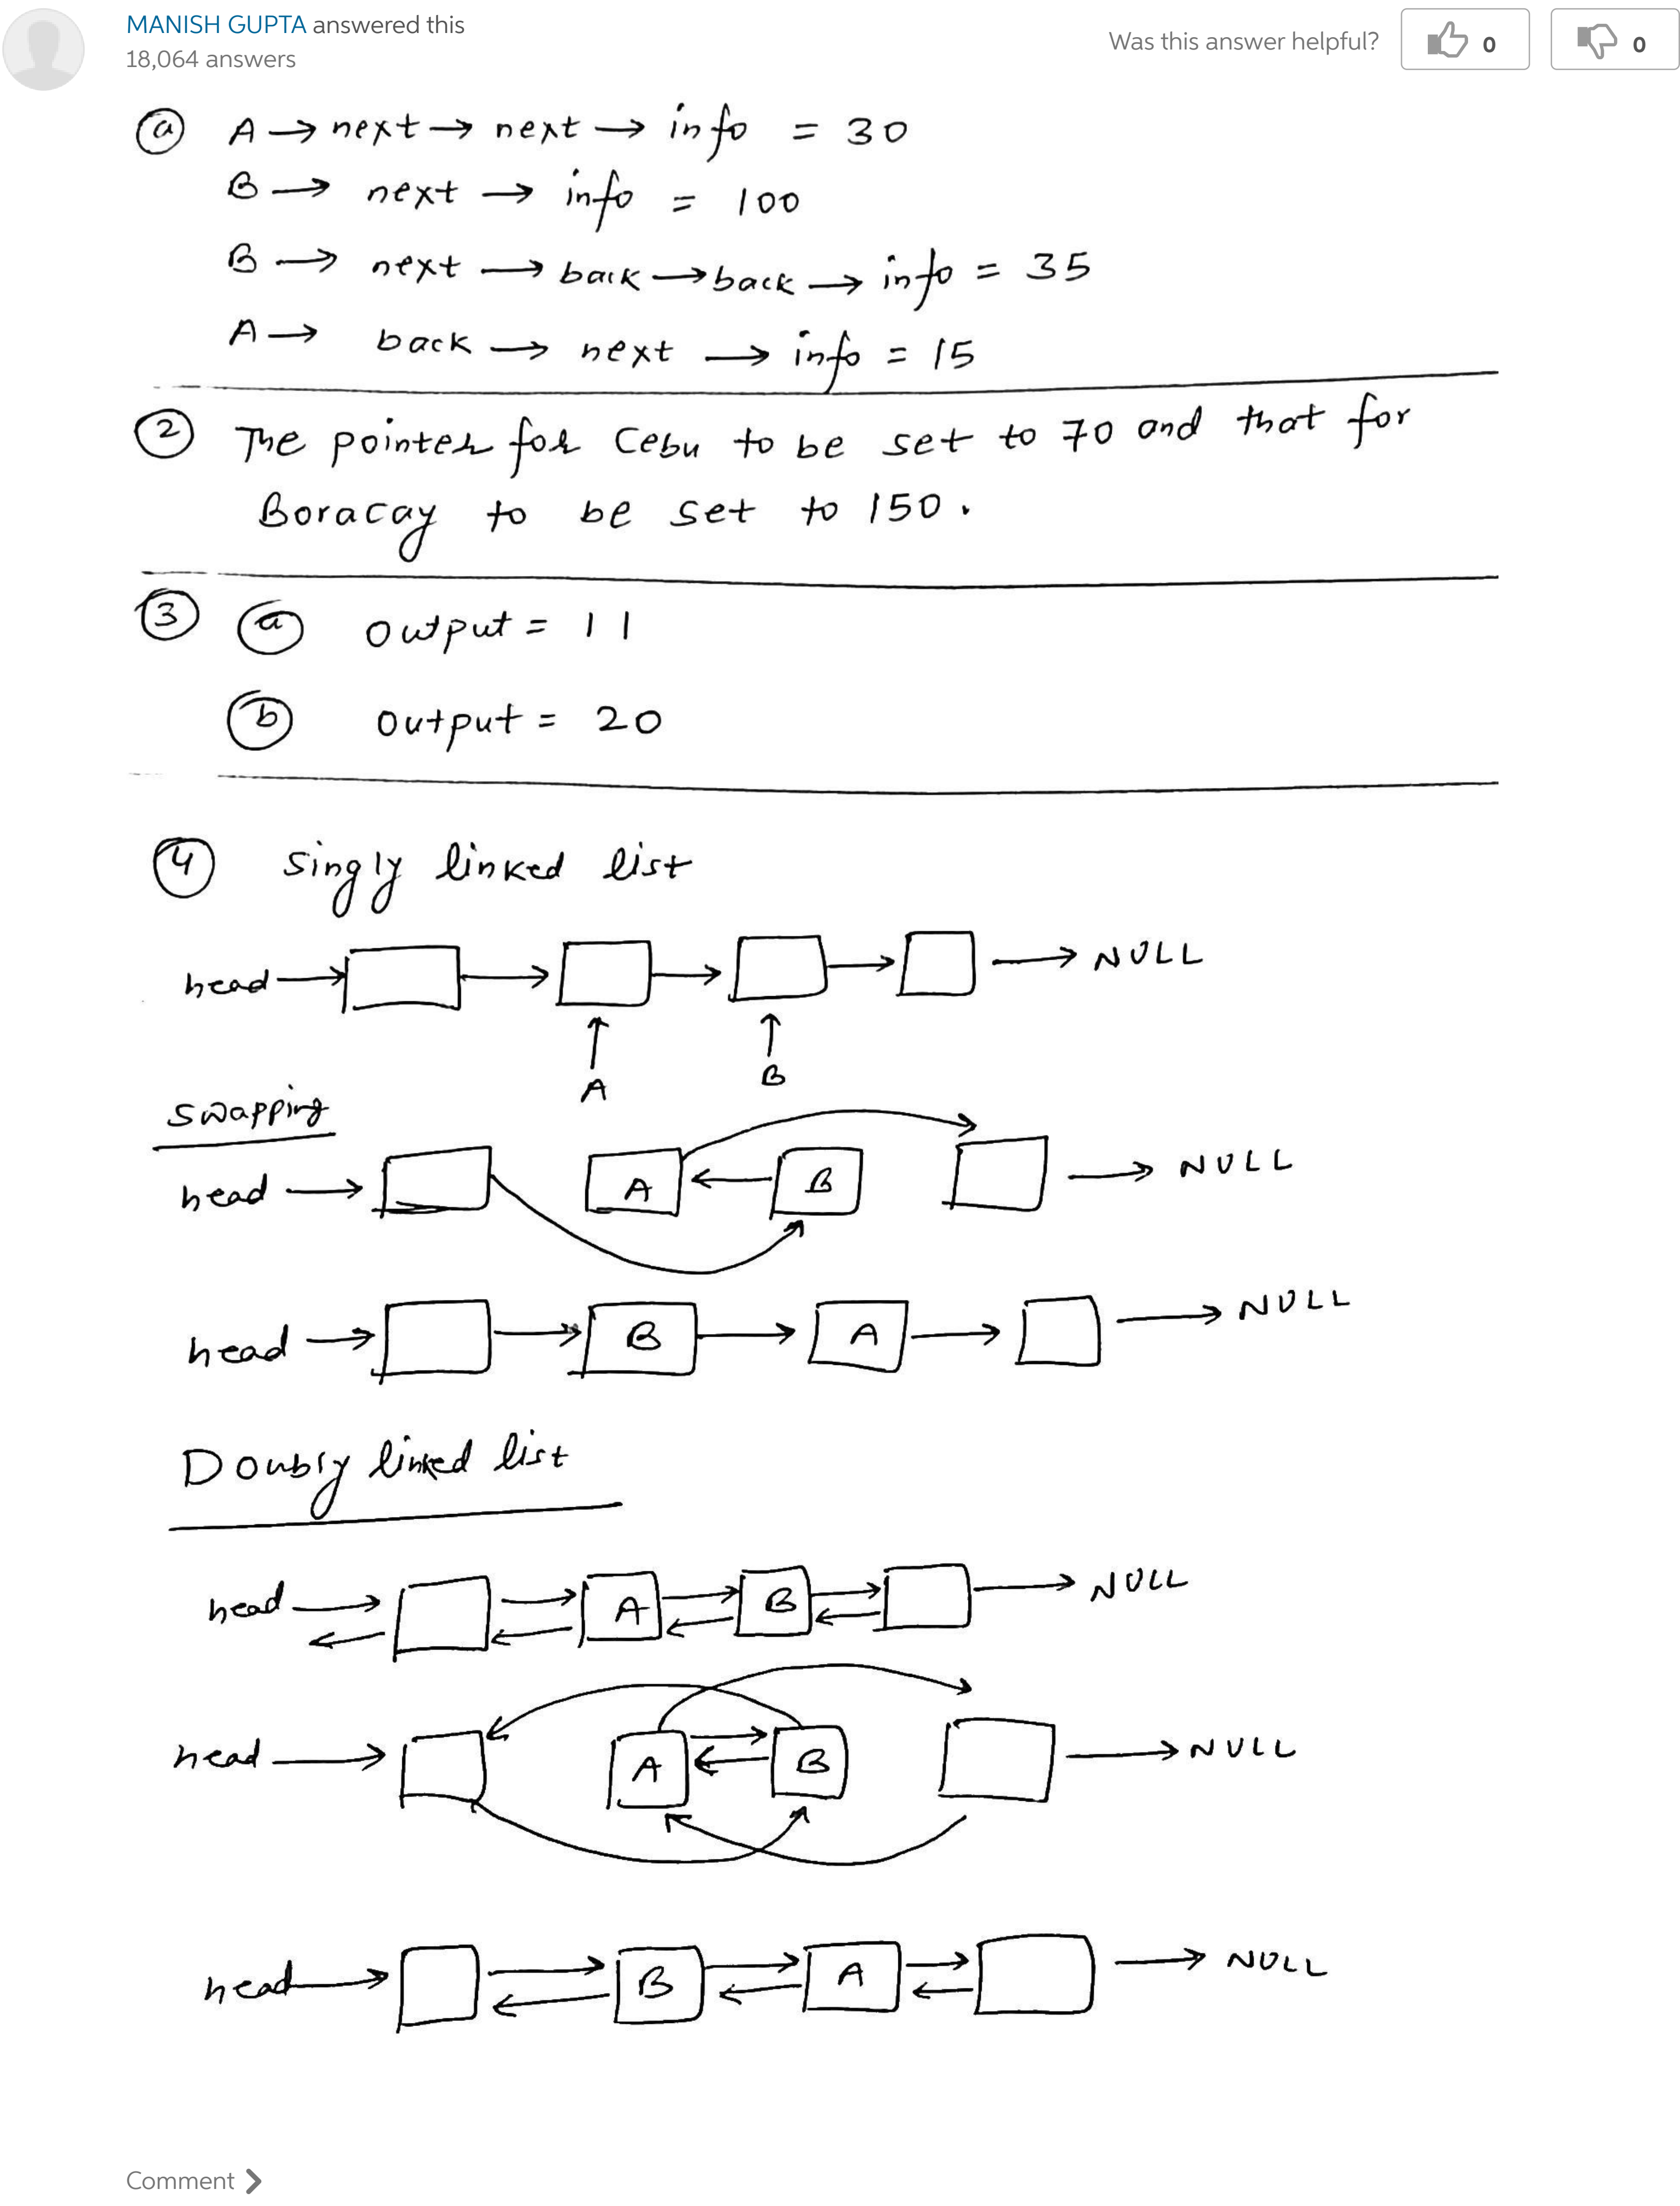 MANISH GUPTA answered this
18,064 answers
Was this answer helpful? 0 0
a A → next → next → info = 30
B → next → info = 100
B → next → back → back → info = 35
A → back → next → info = 15
2 The pointer for Cebu to be set to 70 and that for
Boracay to be set to 150.
3 a output = 11
b output = 20
4 singly linked list
head → → → → → NULL
↑ ↑
A B
swapping
head → A ← B → NULL
head → → B → A → → NULL
Doubly linked list
head → A B → NULL
head → A B → NULL
head → B A → NULL
Comment